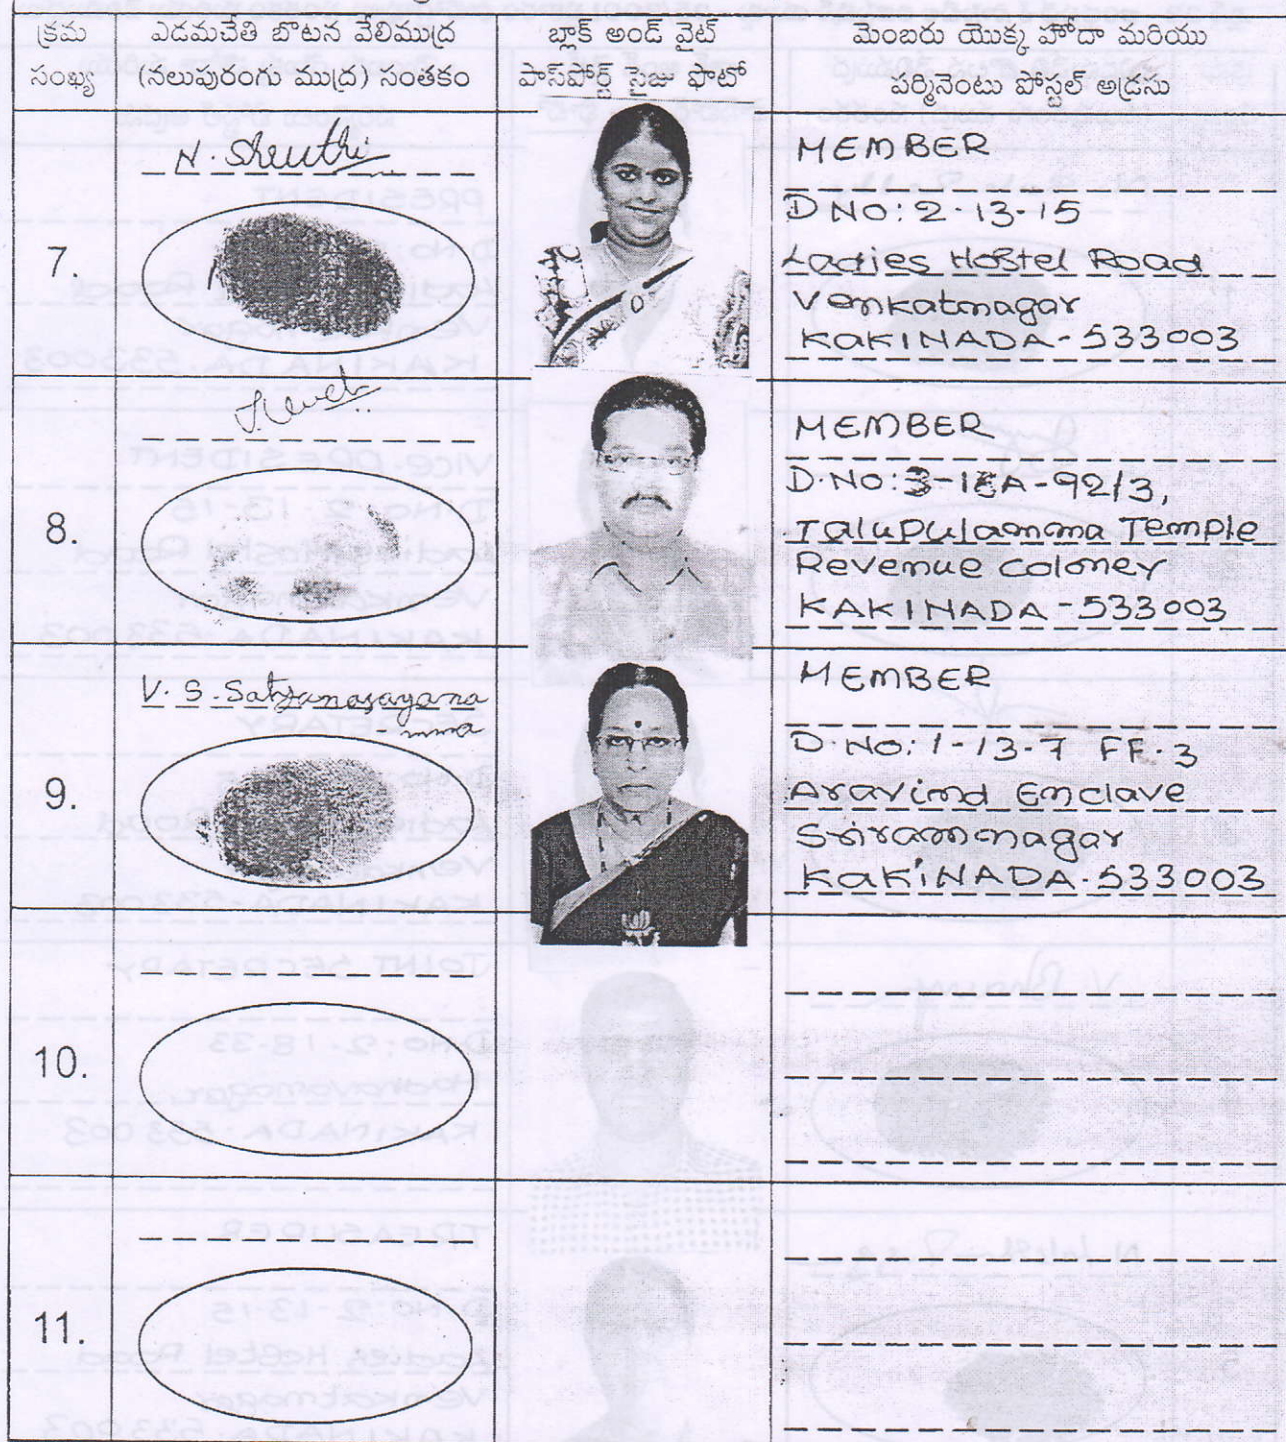 క్రమ సంఖ్య
ఎడమచేతి బొటన వేలిముద్ర (నలుపురంగు ముద్ర) సంతకం
బ్లాక్ అండ్ వైట్ పాస్‌పోర్ట్ సైజు ఫొటో
మెంబరు యొక్క హోదా మరియు పర్మినెంటు పోస్టల్ అడ్రసు
7.
N. Sheuthi
MEMBER
D NO: 2-13-15
Ladies Hostel Road
Venkatnagar
KAKINADA - 533003
8.
MEMBER
D.NO: 3-16A-92/3,
Talupulamma Temple
Revenue coloney
KAKINADA - 533003
9.
V. S. Satyanarayana
mma
MEMBER
D.NO. 1-13-7 FF-3
Aravind Enclave
Sriramnagar
KAKINADA - 533003
10.
11.